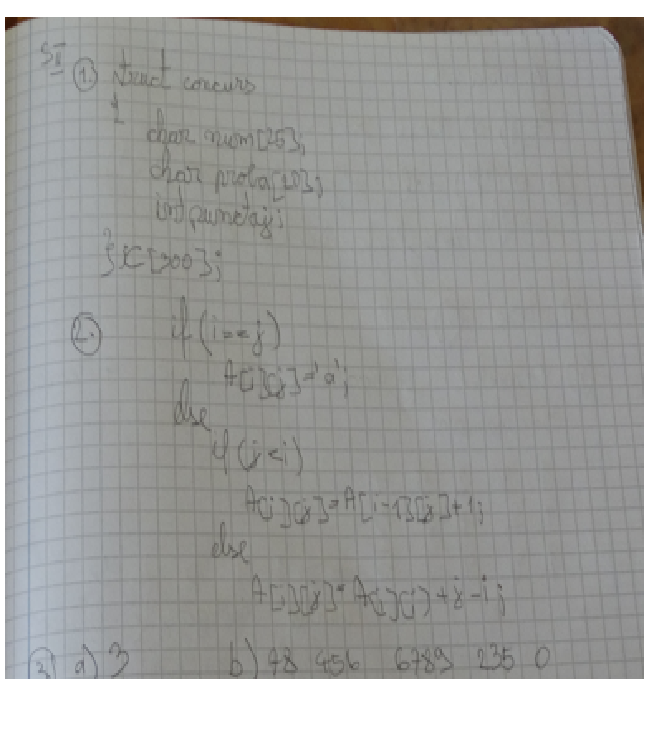 SII
1. struct concurs
{
char num[25];
char proba[20];
int punctaj;
}x[300];
2. if(i==j)
A[i][j]='a';
else
if(j<i)
A[i][j]=A[i-1][j]+1;
else
A[i][j]=A[i][i]+j-i;
3) a) 3 b) 98 456 6789 235 0